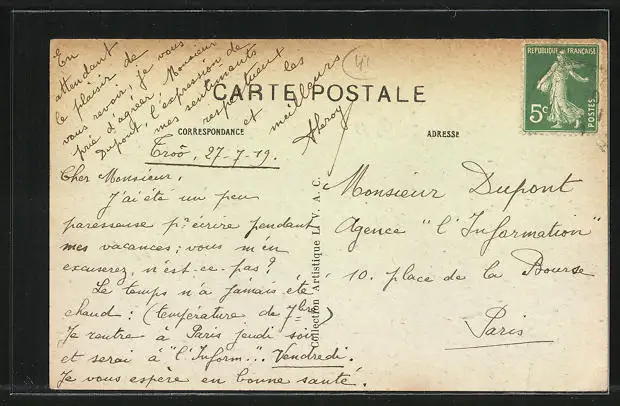 CARTE POSTALE
CORRESPONDANCE
ADRESSE
RÉPUBLIQUE FRANÇAISE
5c
POSTES
Troô, 27-7-19.
Cher Monsieur,
J'ai été un peu
paresseuse pr écrire pendant
mes vacances ; vous m'en
excuserez, n'est-ce-pas ?
Le temps n'a jamais été
chaud : (température de 7bre)
Je rentre à Paris jeudi soir
et serai à "l'Inform"... Vendredi.
Je vous espère en bonne santé.
En
attendant
le plaisir de
vous revoir, je vous
prie d'agréer Monsieur
Dupont, l'expression de
mes sentiments
respectueux
et les meilleurs
Collection Artistique L. V. A. C.
Monsieur Dupont
Agence "l'Information"
10. place de la Bourse
Paris